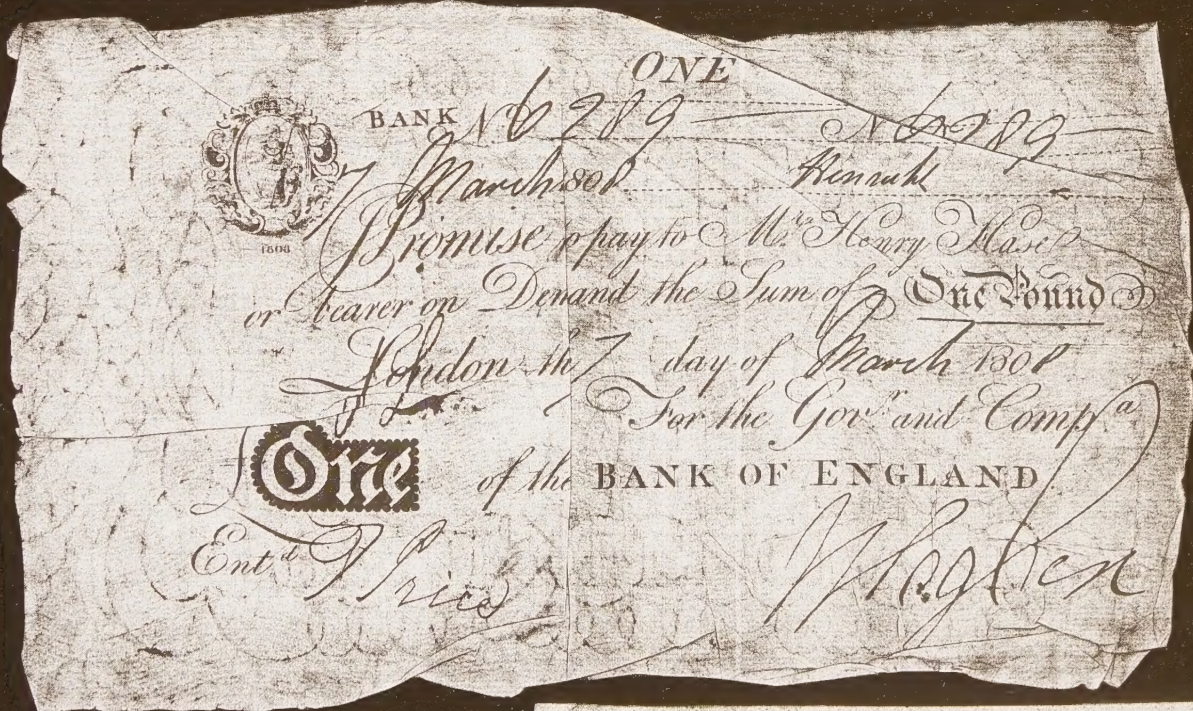 ONE
BANK No 6289 No 6289
7 March 1808
1808
I Promise to pay to Mr. Henry Hase
or bearer on Demand the Sum of One Pound
London the 7 day of March 1808
For the Govr. and Compa.
£ One of the BANK OF ENGLAND
Entd. Price